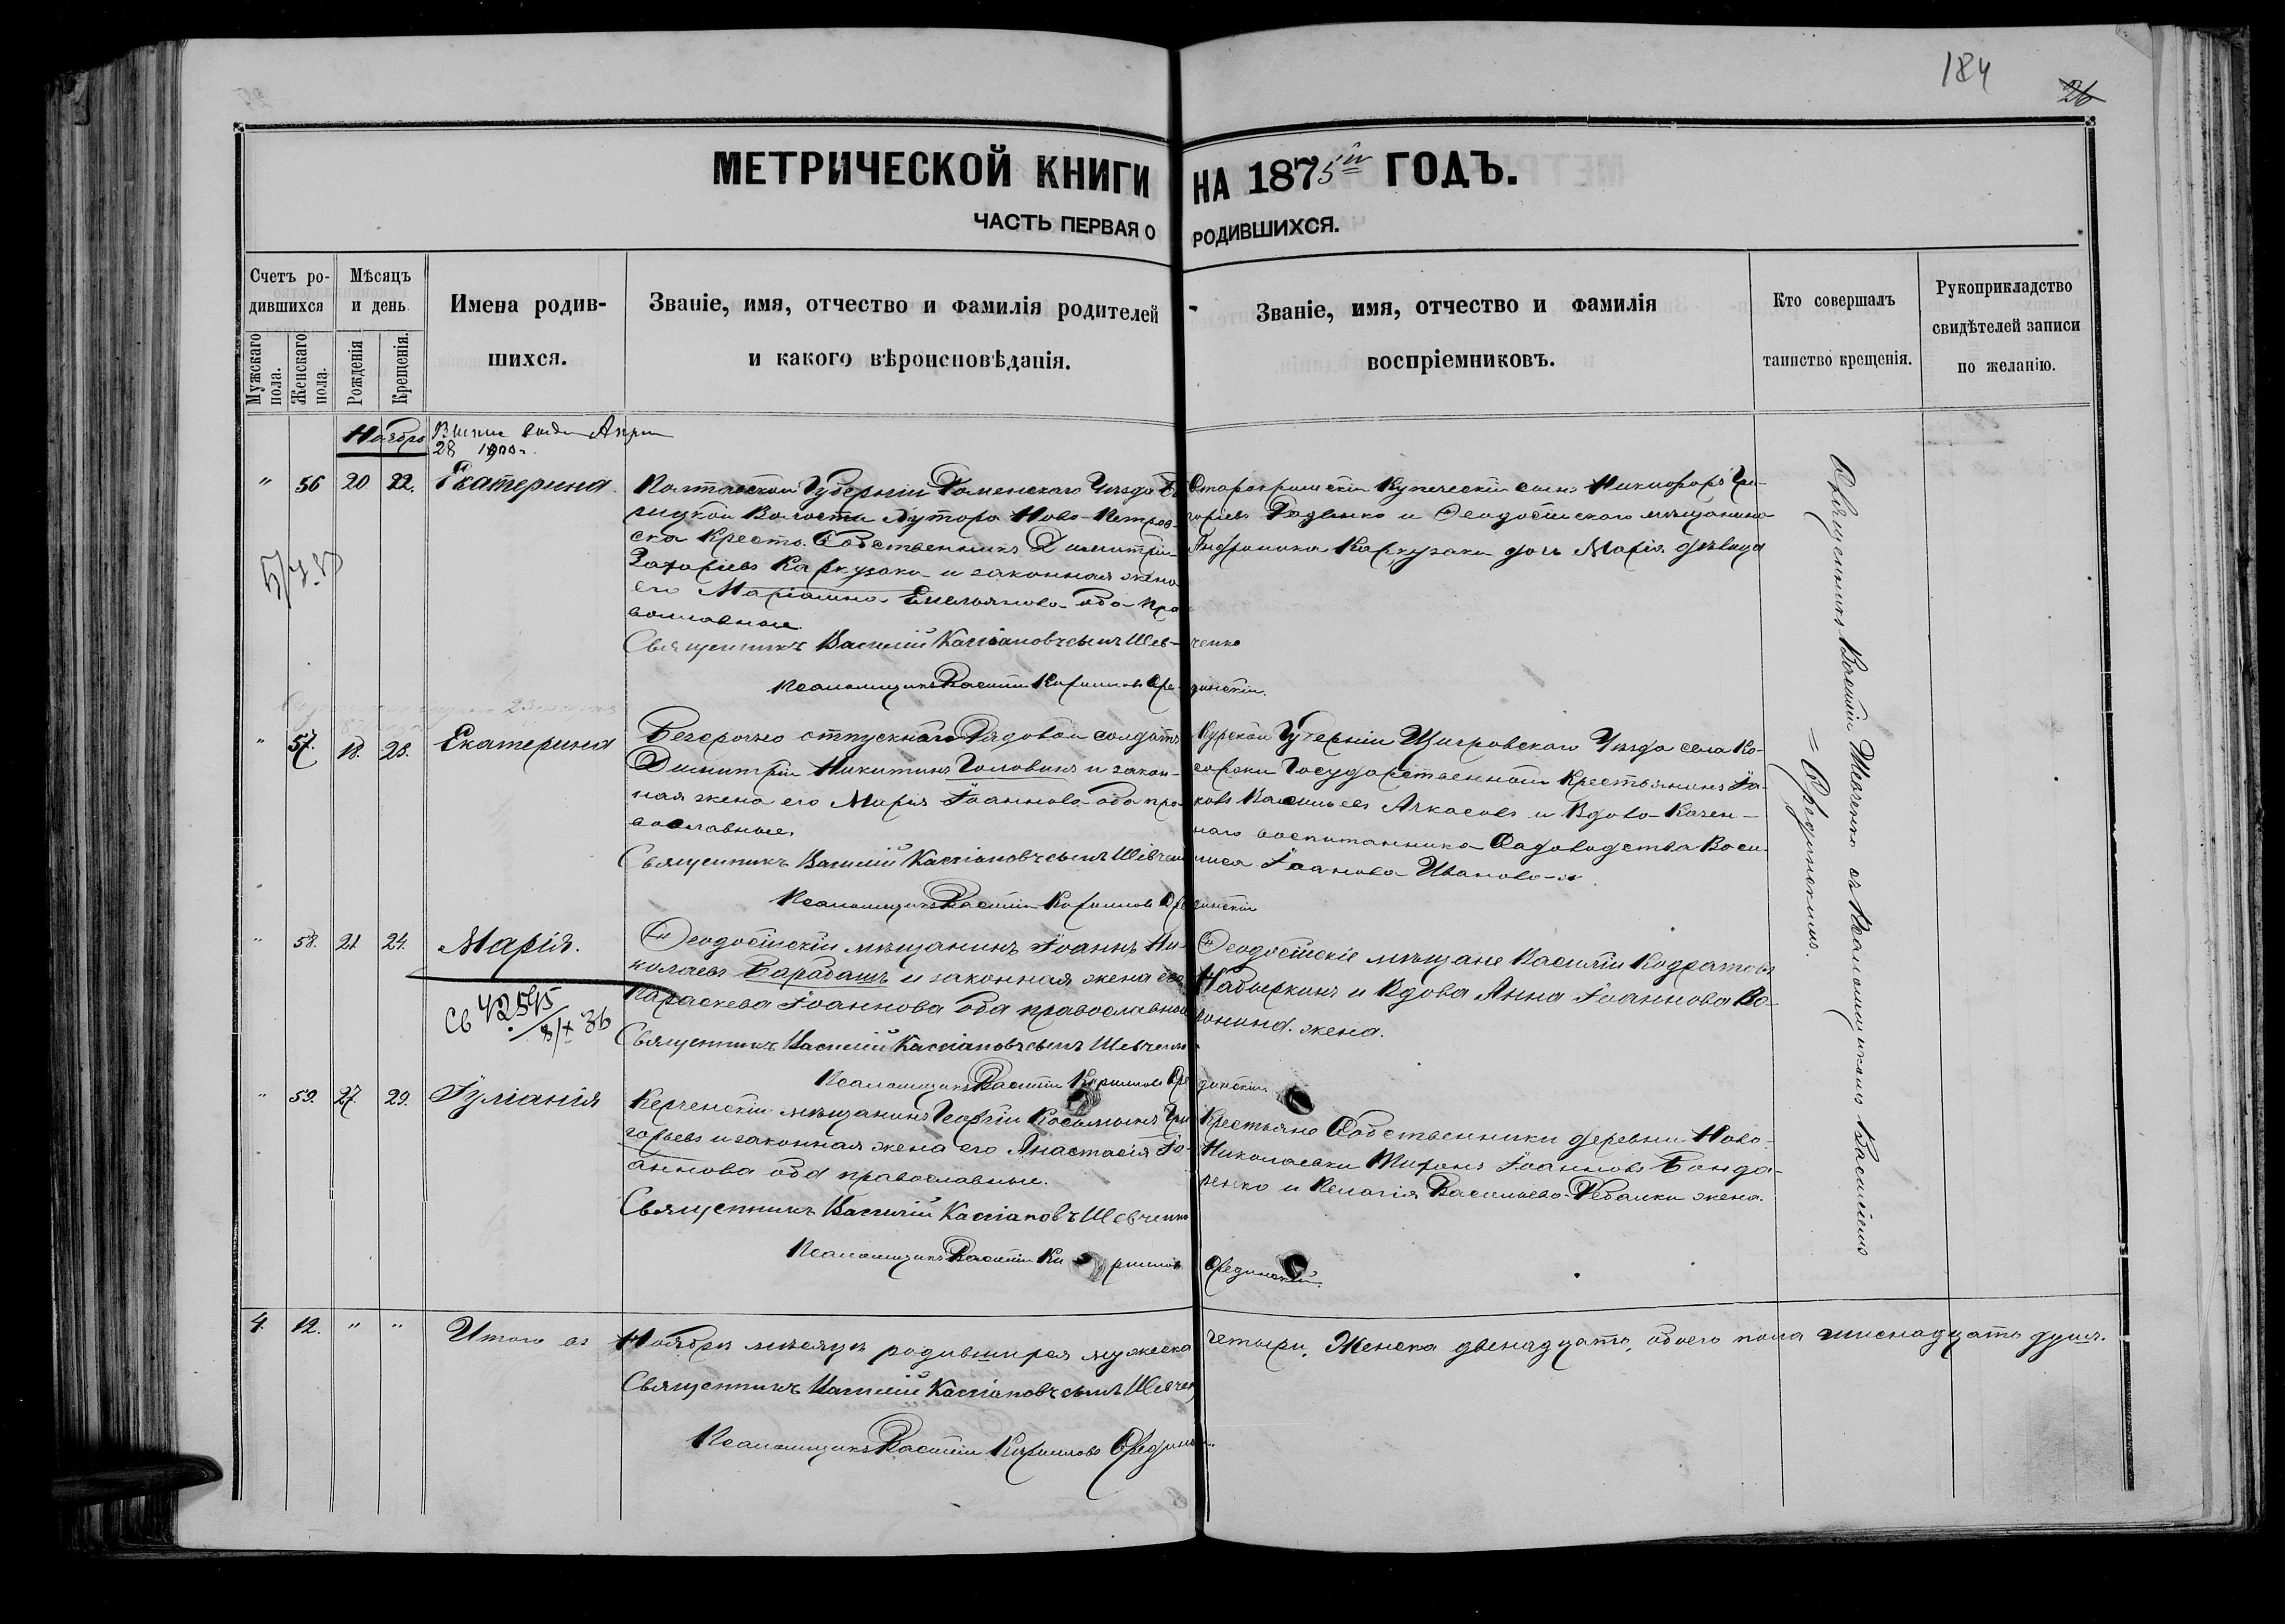 184
26
МЕТРИЧЕСКОЙ КНИГИ НА 1875й ГОДЪ.
ЧАСТЬ ПЕРВАЯ О РОДИВШИХСЯ.
Счетъ ро-
дившихся
Мужскаго пола.
Женскаго пола.
Мѣсяцъ
и день.
Рожденія
Крещенія.
Имена родив-
шихся.
Званіе, имя, отчество и фамилія родителей
и какого вѣроисповѣданія.
Званіе, имя, отчество и фамилія
воспріемниковъ.
Кто совершалъ
таинство крещенія.
Рукоприкладство
свидѣтелей записи
по желанію.
Ноябрь
28 1900 г.
" 56 20 22. Екатерина
Полтавской Губерніи Роменскаго Уѣзда
Волости Хутора Ново-Петров-
ска Кресть. Собственникъ Димитрій
Захаріевъ Каркузака и законная жена
его Маріамна Емельянова оба пра
вославные.
Священникъ Василій Кассіановъ сынъ Шевченко
Псаломщикъ Василій Кириловъ Срединскій.
Старокрымскій Купеческій сынъ Никифоръ Гри-
горіевъ Радченко и Ѳеодосійскаго мѣщанина
Андроника Каркузаки дочь Марія дѣвица
" 57. 18. 23. Екатерина
Безсрочно отпускнаго Рядовой солдатъ
Димитрій Никитинъ Головинъ и закон-
ная жена его Марія Іоаннова оба пра
вославные.
Священникъ Василій Кассіановъ сынъ Шевчен
Псаломщикъ Василій Кириловъ Срединскій
Курской Губерніи Щигровскаго Уѣзда села Ко-
соржи Государственный Крестьянинъ Іа-
ковъ Васильевъ Ачкасовъ и Вдова Казен-
наго воспитанника Садоводства Васи-
лиса Іоанова Иванова
" 58. 21 24. Марія.
Ѳеодосійскій мѣщанинъ Іоаннъ Ни-
колаевъ Барабашъ и законная жена его
Параскева Іоаннова оба православные
Священникъ Василій Кассіановъ сынъ Шевченко
Псаломщикъ Василій Кириловъ Срединскій
Св 42575
8/X 36
Ѳеодосійскіе мѣщане Василій Кодратовъ
Набыркинъ и Вдова Анна Іоаннова Во-
ронина. жена.
" 59. 27. 29. Іуліанія
Керченскій мѣщанинъ Георгій Косьминъ Гри
горьевъ и законная жена его Анастасія Іо-
аннова оба православные.
Священникъ Василій Кассіановъ Шевченко
Псаломщикъ Василій Кириловъ Срединскій.
Крестьяне Собственники деревни Ново-
Николаевки Тихонъ Іоанновъ Бонда-
ренко и Пелагія Васильева Рябалки жена.
Священникъ Василій Шевченко съ Псаломщикомъ Василіемъ
= Срединскимъ.
4. 12. " " Итого въ Ноябрѣ мѣсяцѣ родившихся мужеска четыри, Женска двенадцать, обоего пола шеснадцать душъ.
Священникъ Василій Кассіановъ сынъ Шевчен
Псаломщикъ Василій Кириловъ Средин